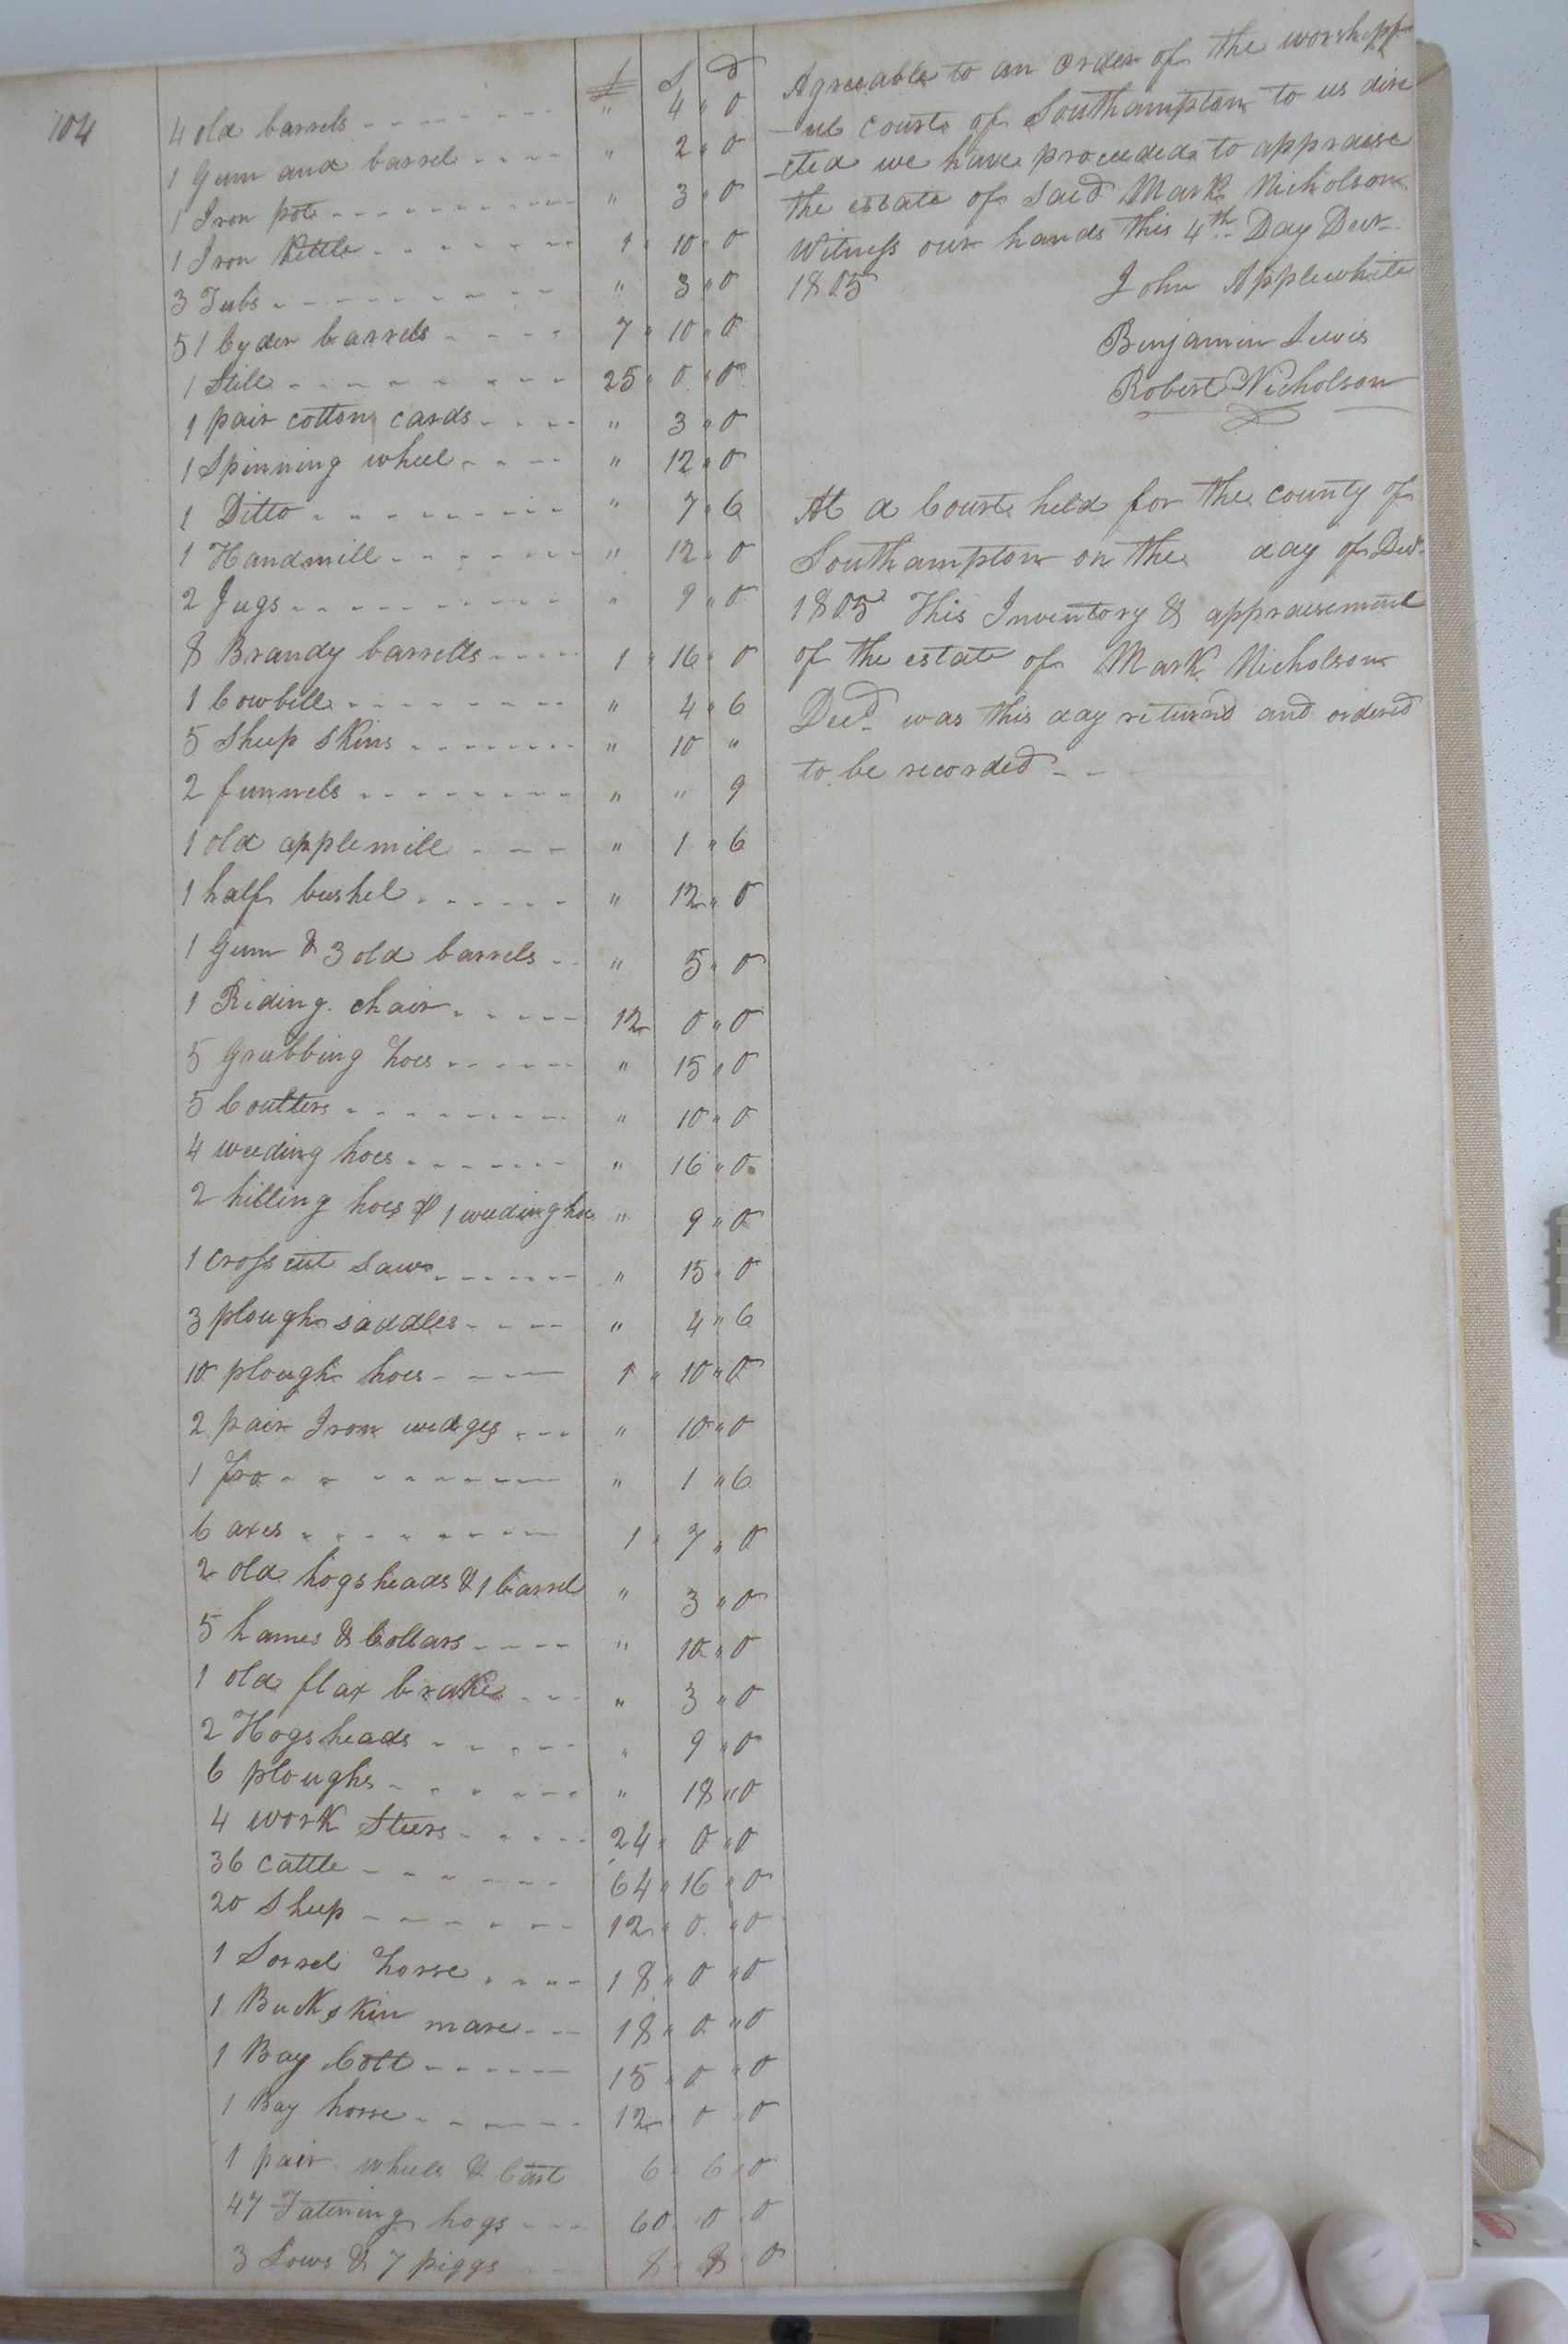 104
£ S d
4 old barrels - - - - - - - " 4 " 0
1 Gum and barrel - - - - " 2 " 0
1 Iron pot - - - - - - - - - " 3 " 0
1 Iron Kettle - - - - - - - 1 " 10 " 0
3 Tubs - - - - - - - - - " 3 " 0
51 Cyder barrels - - - - 7 " 10 " 0
1 Still - - - - - - - - - 25 " 0 " 0
1 pair cotton cards - - - - " 3 " 0
1 Spinning wheel - - - - " 12 " 0
1 Ditto - - - - - - - - - " 7 " 6
1 Handmill - - - - - - - " 12 " 0
2 Jugs - - - - - - - - - " 9 " 0
8 Brandy barrells - - - - 1 " 16 " 0
1 Cowbell - - - - - - - - " 4 " 6
5 Sheep skins - - - - - - - " 10 "
2 funnels - - - - - - - - " " 9
1 old applemill - - - " 1 " 6
1 half bushel - - - - - - " 12 " 0
1 Gum & 3 old barrels - - " 5 " 0
1 Riding chair - - - - - 12 0 " 0
5 Grubbing hoes - - - - - " 15 " 0
5 Coulters - - - - - - - - " 10 " 0
4 weeding hoes - - - - - - - " 16 " 0
2 hilling hoes & 1 weeding hoe " 9 " 0
1 cross cut saw - - - - - - " 15 " 0
3 plough saddles - - - - " 4 " 6
10 plough hoes - - - - 1 " 10 " 0
2 pair Iron wedges - - - " 10 " 0
1 fro - - - - - - - - - " 1 " 6
6 axes - - - - - - - - 1 " 7 " 0
2 old hogsheads & 1 barrel " 3 " 0
5 hames & Collars - - - - " 10 " 0
1 old flax brake - - - " 3 " 0
2 Hogsheads - - - - - " 9 " 0
6 ploughs - - - - - - " 18 " 0
4 work Steers - - - - - 24 " 0 " 0
36 cattle - - - - - - 64 " 16 " 0
20 Sheep - - - - - - 12 " 0 " 0
1 Sorrel horse - - - - 18 " 0 " 0
1 Buckskin mare - - - 18 " 0 " 0
1 Bay Colt - - - - - - 15 " 0 " 0
1 Bay horse - - - - - - 12 " 0 " 0
1 pair wheels & Cart 6 " 6 " 0
47 Fatening hogs - - - 60 " 0 " 0
3 Sows & 7 piggs - - - 8 " 8 " 0
Agreeable to an order of the worshipf
-ul court of Southampton to us dire
-cted we have proceeded to appraise
the estate of said Mark Nicholson.
Witness our hands this 4th Day Decr.
1805 John Applewhite
Benjamin Lewis
Robert Nicholson
At a Court held for the county of
Southampton on the day of Decr.
1805 This Inventory & appraisement
of the estate of Mark Nicholson
Decd. was this day returnd and ordered
to be recorded - -